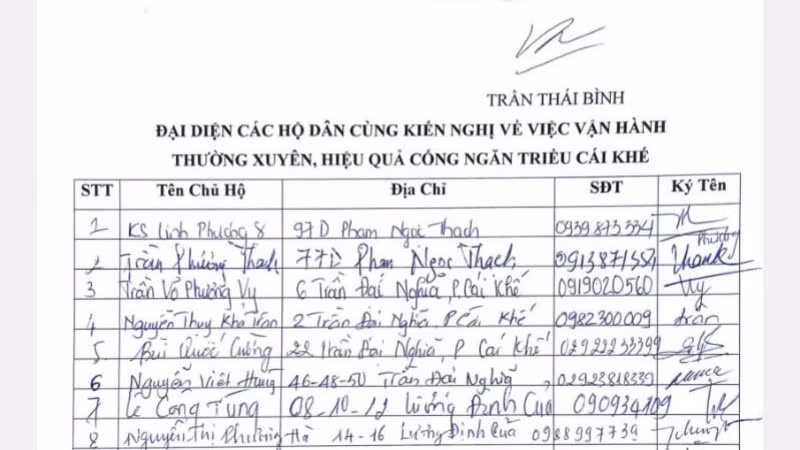 TRẦN THÁI BÌNH
ĐẠI DIỆN CÁC HỘ DÂN CÙNG KIẾN NGHỊ VỀ VIỆC VẬN HÀNH
THƯỜNG XUYÊN, HIỆU QUẢ CỐNG NGĂN TRIỀU CÁI KHẾ
STT Tên Chủ Hộ Địa Chỉ SĐT Ký Tên
1 KS Linh Phương 8 97D Phạm Ngọc Thạch 0939.873.334
2 Trần Phương Thạch 77D Phạm Ngọc Thạch 0913871551 Phương Thanh
3 Trần Võ Phương Vy 6 Trần Đại Nghĩa, P. Cái Khế 091902D560 Vy
4 Nguyễn Thụy Khả Trân 2 Trần Đại Nghĩa, P Cái Khế 0982300009 trân
5 Bùi Quốc Cường 22 Trần Đại Nghĩa, P Cái Khế 02922233399
6 Nguyễn Viết Hùng 46-48-50 Trần Đại Nghĩa, 02923818339
7 Lê Công Tùng 08-10-12 Lương Đình Của 090934109
8 Nguyễn Thị Phương Hà 14-16 Lương Định Của 0988997739